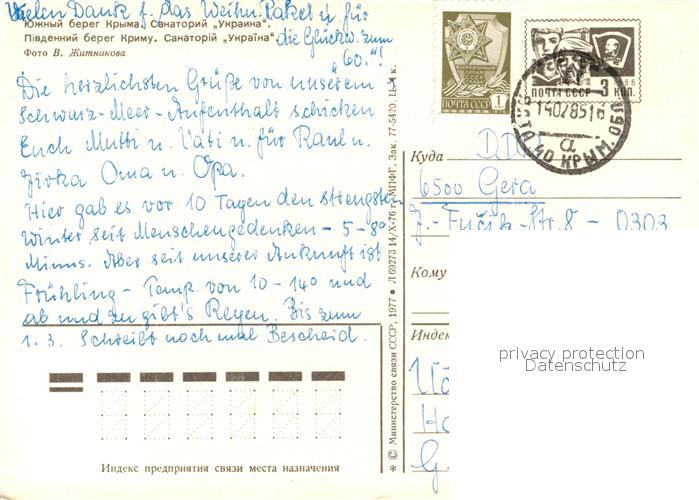 Vielen Dank f. das Weihn. Paket u. für
die Glückw. zum
"60."!
Южный берег Крыма. Санаторий „Украина".
Південний берег Криму. Санаторій „Україна".
Фото В. Житникова
Die herzlichsten Grüße von unserem
Schwarz-Meer-Aufenthalt schicken
Euch Mutti u. Vati u. für Raul u.
Jirka Oma u. Opa.
Hier gab es vor 10 Tagen den strengsten
Winter seit Menschengedenken - 5-8°
Minus. Aber seit unserer Ankunft ist
Frühling - Temp. von 10-14° und
ab und zu gibt's Regen. Bis zum
1. 3. Schreibt noch mal Bescheid.
Индекс предприятия связи места назначения
✻ © Министерство связи СССР, 1977 ● Л 69273 14/X-76 г. МПФГ. Зак. 77-5420. Ц-4 к.
ПОЧТА СССР 1
ПОЧТА СССР 3 КОП.
140285 16
КРЫМ. ОБЛ
Куда DDR
6500 Gera
J.-Fučík-Str. 8 - 0303
Кому
Индек
privacy protection
Datenschutz